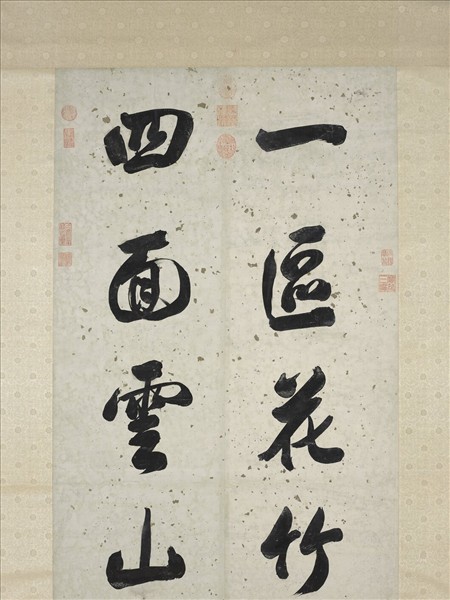 一區花竹
四面雲山